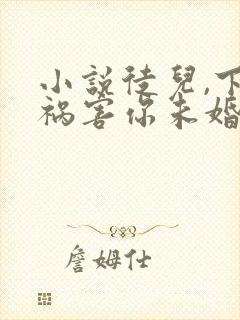 小說徒兒,下
禍害你未婚
詹姆仕